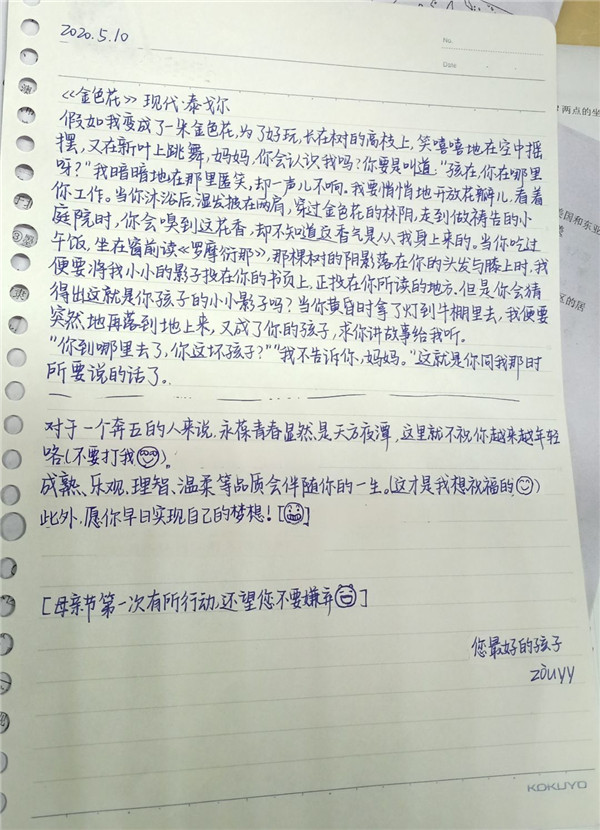 2020.5.10
No.
Date
《金色花》现代·泰戈尔
假如我变成了一朵金色花,为了好玩,长在树的高枝上,笑嘻嘻地在空中摇
摆,又在新叶上跳舞,妈妈,你会认识我吗?你要是叫道:"孩在,你在哪里
呀?"我暗暗地在那里匿笑,却一声儿不响。我要悄悄地开放花瓣儿,看着
你工作。当你沐浴后,湿发披在两肩,穿过金色花的林阴,走到做祷告的小
庭院时,你会嗅到这花香,却不知道这香气是从我身上来的。当你吃过
午饭,坐在窗前读《罗摩衍那》,那棵树的阴影落在你的头发与膝上时,我
便要将我小小的影子投在你的书页上,正投在你所读的地方.但是你会猜
得出这就是你孩子的小小影子吗?当你黄昏时拿了灯到牛棚里去,我便要
突然地再落到地上来,又成了你的孩子,求你讲故事给我听。
"你到哪里去了,你这坏孩子?""我不告诉你,妈妈。"这就是你同我那时
所要说的话了。
对于一个奔五的人来说,永葆青春显然是天方夜潭,这里就不祝你越来越年轻
咯(不要打我)。
成熟、乐观、理智、温柔等品质会伴随你的一生。(这才是我想祝福的)
此外,愿你早日实现自己的梦想![]
[母亲节第一次有所行动,还望您不要嫌弃]
您最好的孩子
zouyy
KOKUYO
两点的坐
美国和东亚
区的居